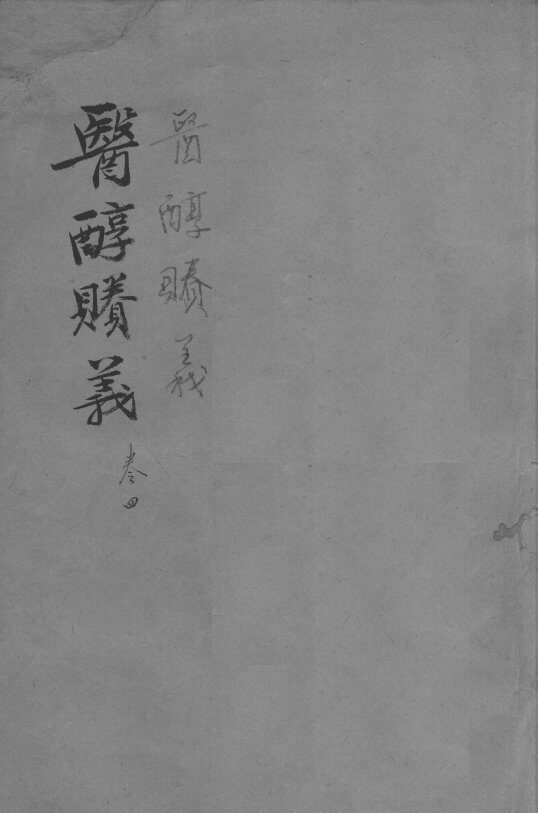 醫醇賸義
醫醇賸義
卷四